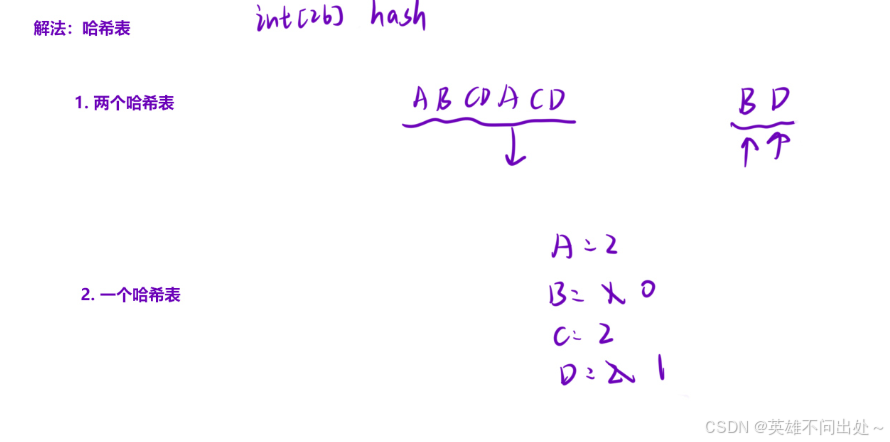 解法：哈希表
int[26] hash
1. 两个哈希表
ABCDACD
BD
A=2
B=1 0
2. 一个哈希表
C=2
D=2 1
CSDN @英雄不问出处～